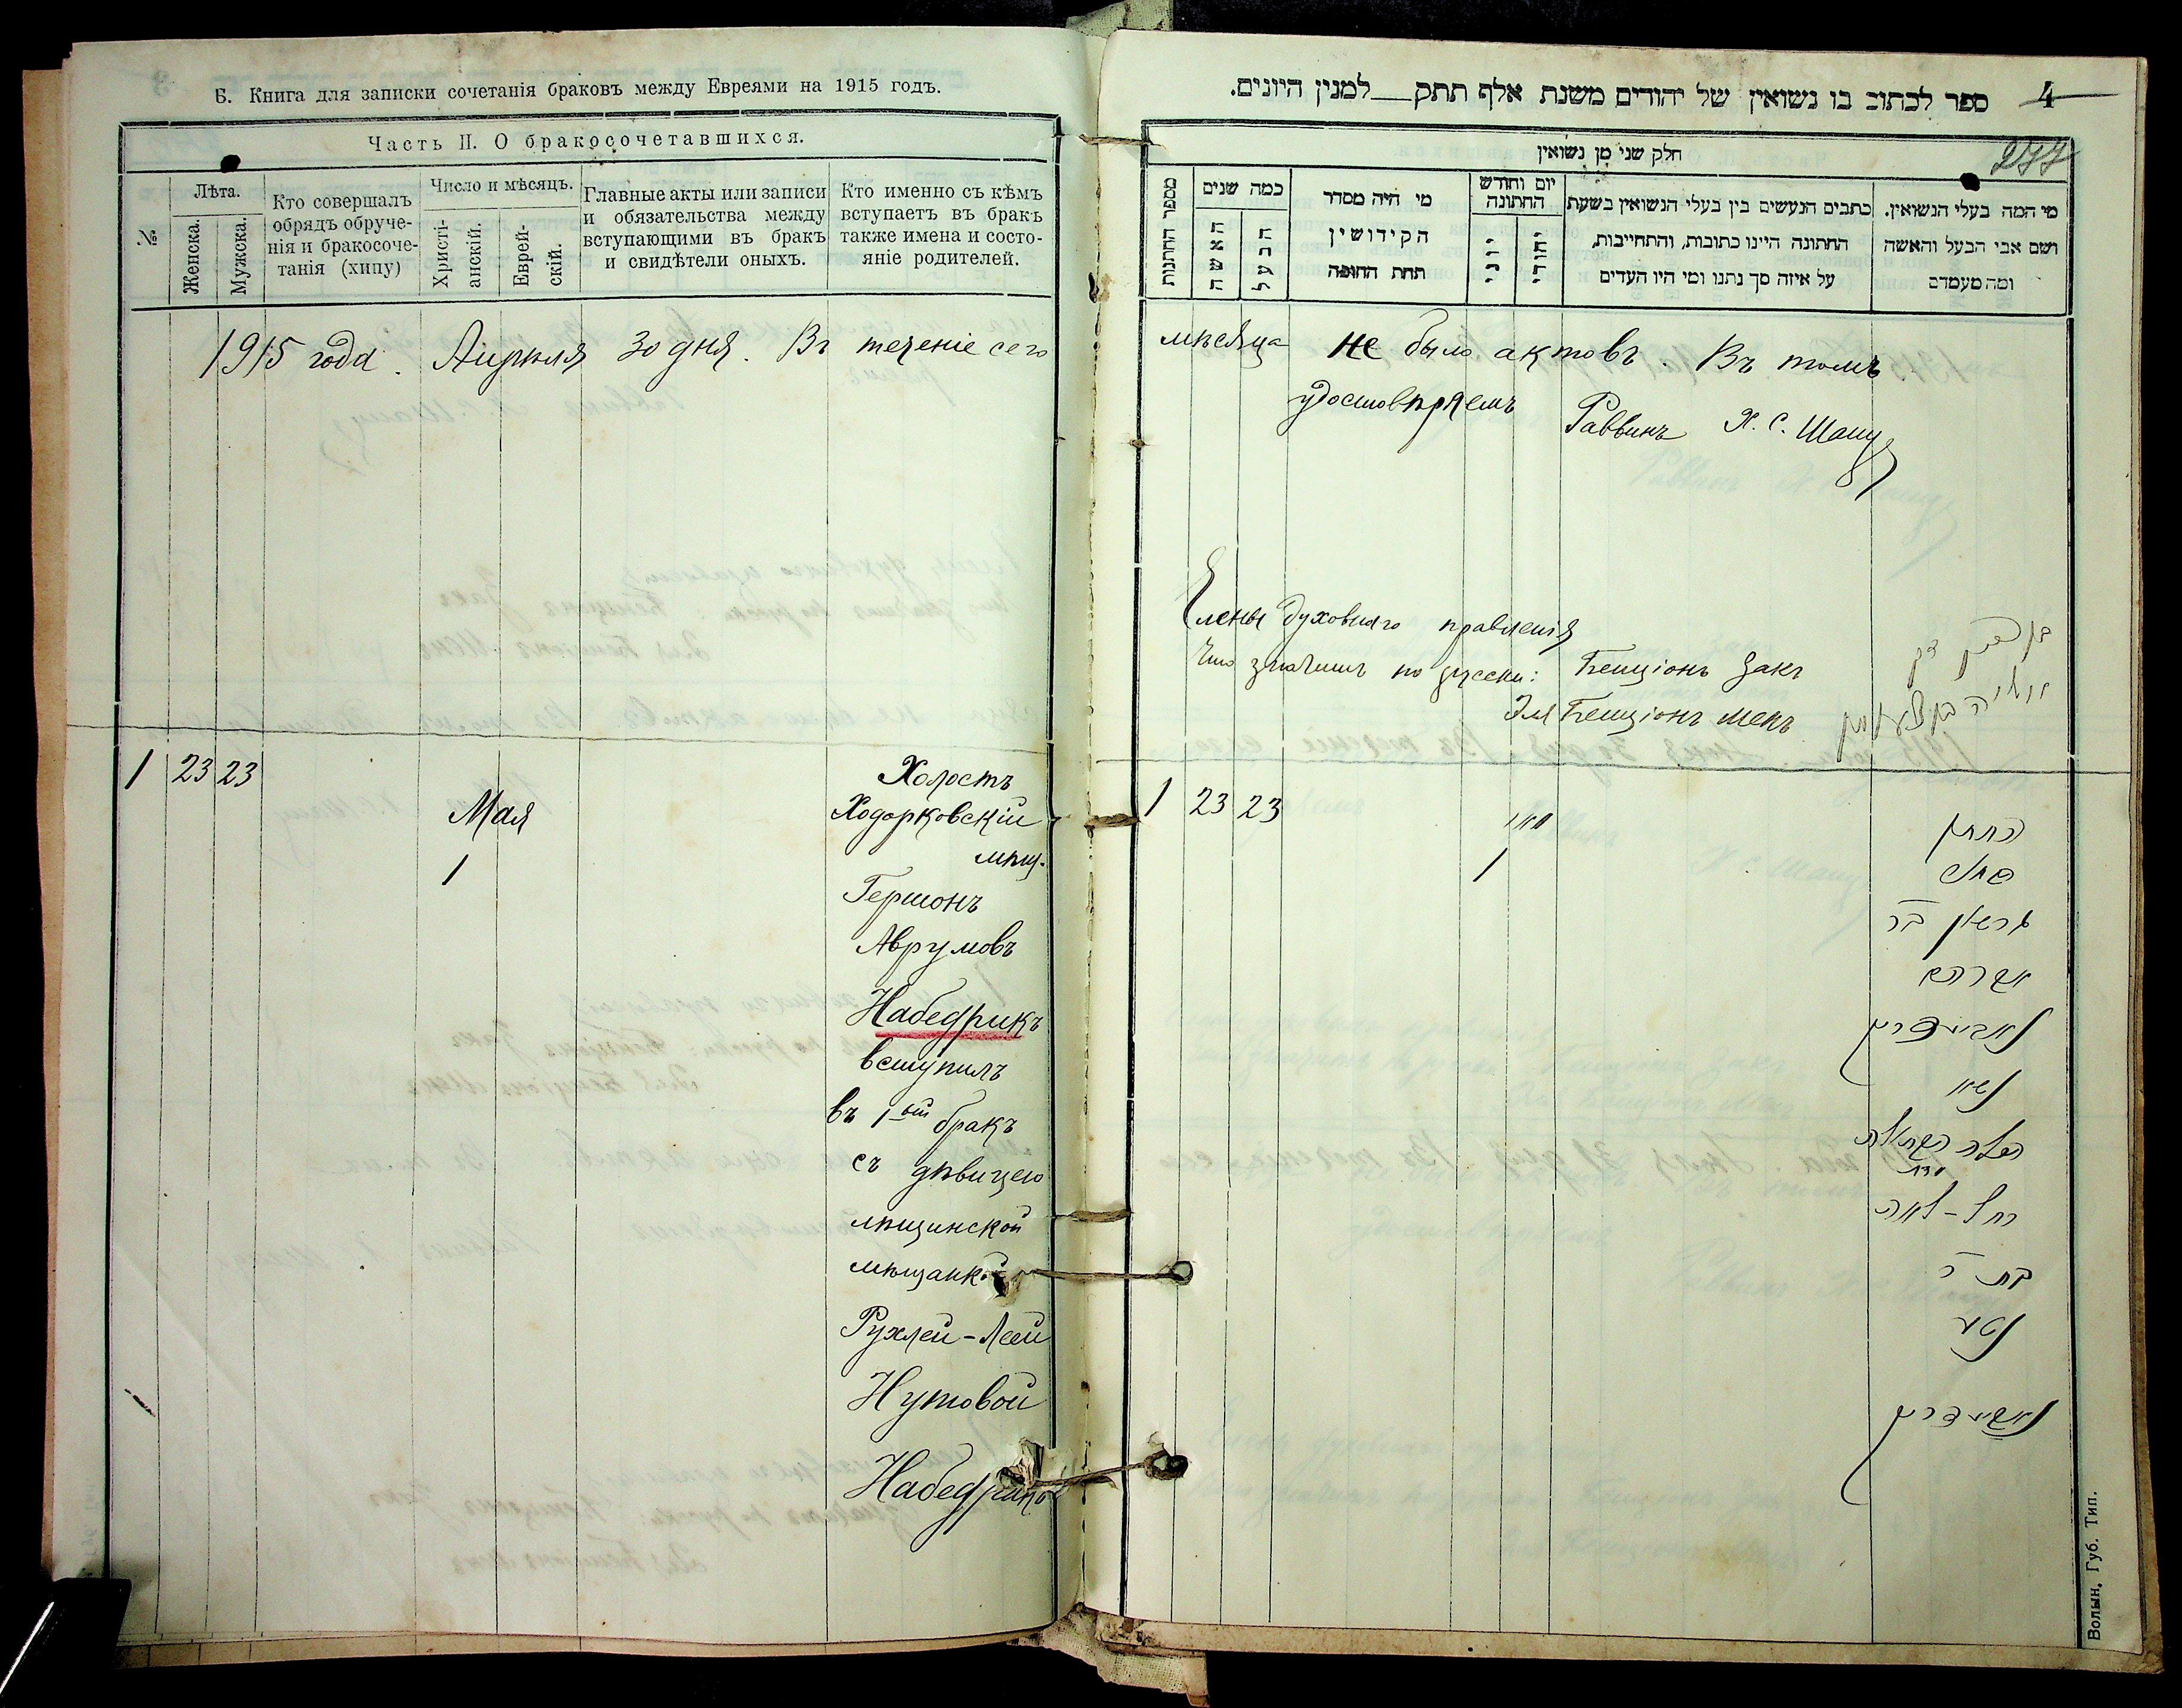 Б. Книга для записки сочетанія браковъ между Евреями на 1915 годъ.
Часть II. О бракосочетавшихся.
№
Лѣта.
Женска.
Мужска.
Кто совершалъ
обрядъ обруче-
нія и бракосоче-
танія (хипу)
Число и мѣсяцъ.
Христі-
анскій.
Еврей-
скій.
Главные акты или записи
и обязательства между
вступающими въ бракъ
и свидѣтели оныхъ.
Кто именно съ кѣмъ
вступаетъ въ бракъ
также имена и состо-
яніе родителей.
1915 года. Апрѣля 30 дня. Въ теченіе сего
1 23 23
Мая
1
Холостъ
Ходорковскій
мѣщ.
Гершонъ
Аврумовъ
Набедрикъ
вступилъ
въ 1ый бракъ
съ дѣвицею
мѣщанкой
Рухлей-Леей
Нутовой
Набедрикъ
ספר לכתוב בו נשואין של יהודים משנת אלף תתק__למנין היונים.
4
277
חלק שני מן נשואין
מספר החתנות
כמה שנים
האשה
הבעל
מי היה מסדר
הקידושין
תחת החופה
יום וחודש
החתונה
יוני
יהודי
כתבים הנעשים בין בעלי הנשואין בשעת
החתונה היינו כתובות, והתחייבות,
על איזה סך נתנו ומי היו העדים
מי המה בעלי הנשואין.
ושם אבי הבעל והאשה
ומה מעמדם
мѣсяца не было актовъ. Въ томъ
удостовѣряемъ
Раввинъ Х. С. Шацъ
Члены духовнаго правленія
Что значитъ по русски: Бенціонъ Закъ
Эля Бенціонъ Мекъ
1 23 23
מאי
1
החתן
גרשון בר
אברהם
נאבעדריק
נשוי
הכלה הבתולה
רחל-לאה
בת ר'
נטע
נאבעדריק
Волын. Губ. Тип.